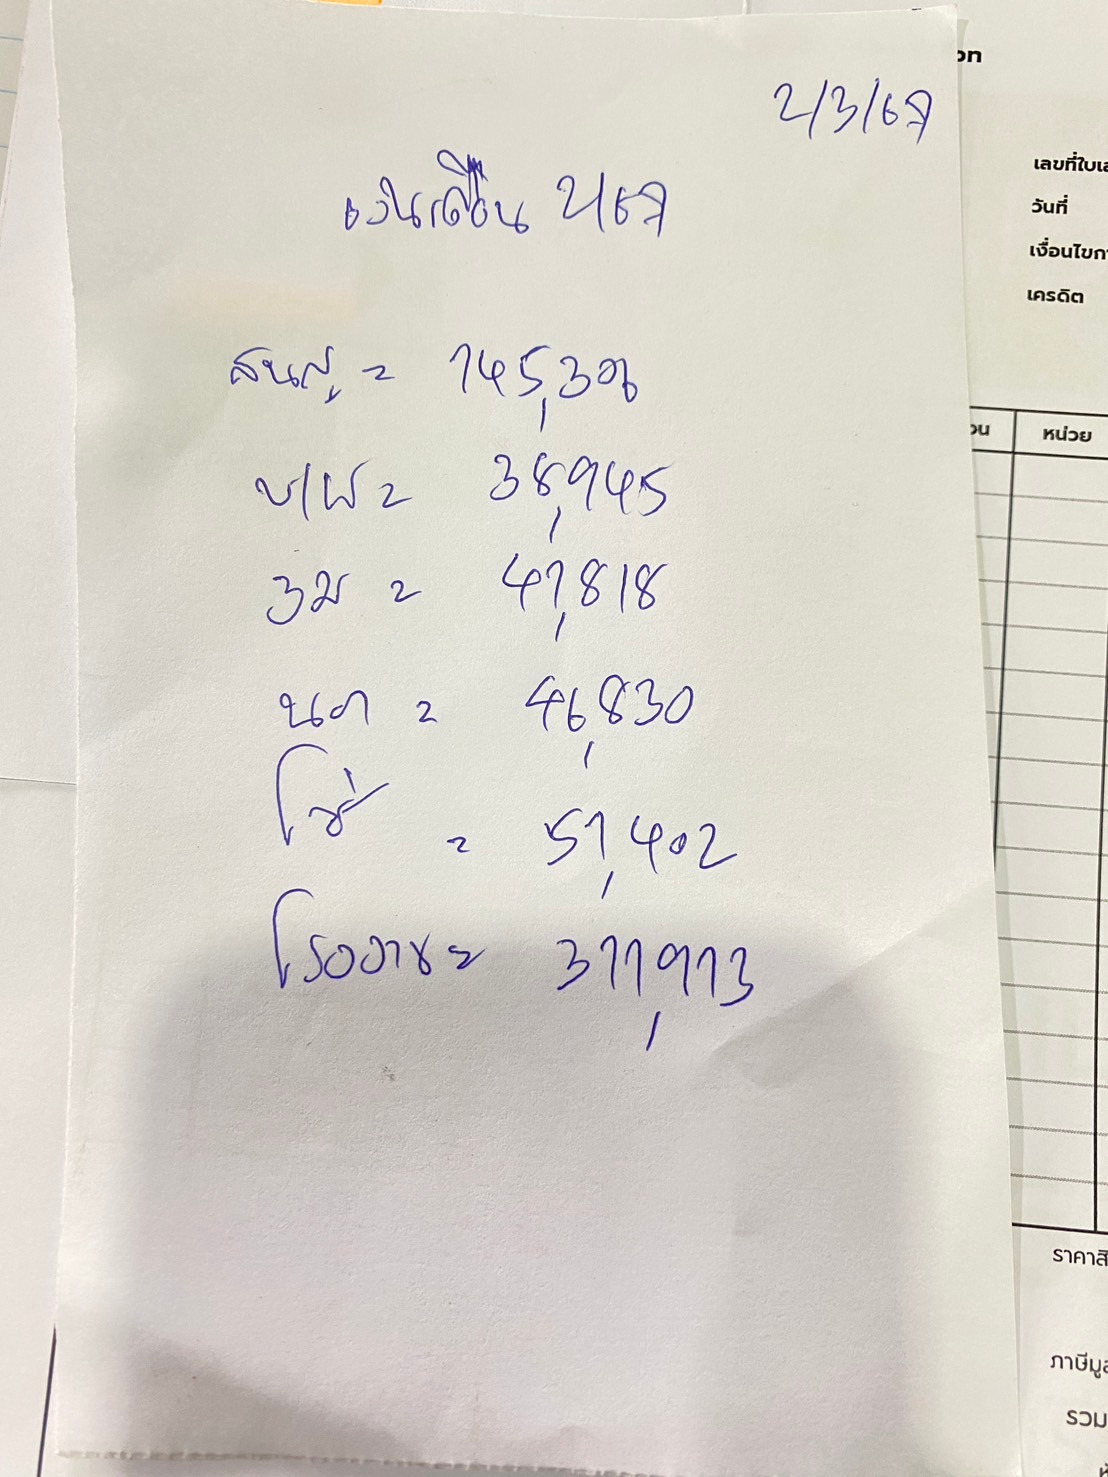 2/3/67
เงินเดือน 2/67
= 145,306
บ/ผ = 38,945
3ม = 41,818
นค = 46,830
โซ่ = 51,402
โรงงาน = 311,913
เลขที่ใบเส
วันที่
เงื่อนไขกา
เครดิต
วน หน่วย
ราคาสิ
ภาษีมูล
รวม